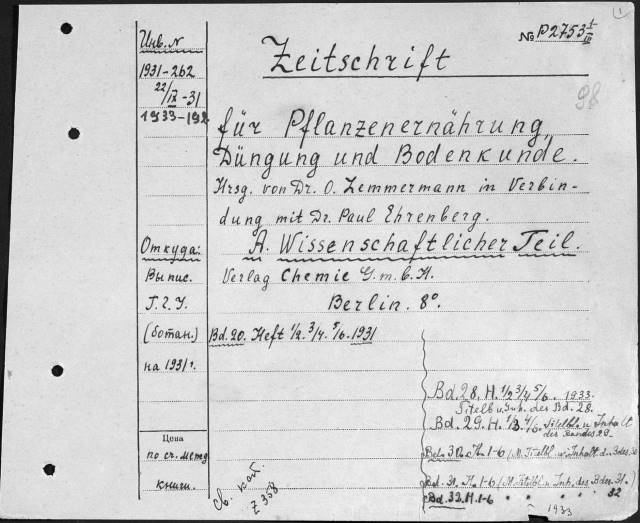 1
№ P2753 I/III
98
Zeitschrift
für Pflanzenernährung,
Düngung und Bodenkunde.
Hrsg. von Dr. O. Zemmermann in Verbin-
dung mit Dr. Paul Ehrenberg.
A. Wissenschaftlicher Teil.
Verlag Chemie G.m.b.H.
Berlin. 8°.
Инв. N
1931-262
22/IX-31
1933-192
Откуда:
Выпис.
Г.Г.У.
(ботан.)
на 1931 г.
Цена
по сч. метд
книги.
Bd. 20. Heft 1/2. 3/4. 5/6. 1931
Bd. 28. H. 1/2 3/4 5/6. 1933.
Titelb u. Inh. des Bd. 28.
Bd. 29. H. 1/3. 4/6. Titelbl. u Inhalt
des Bandes 29.
Bd. 30. H. 1-6 (M. Titelbl u Inhalt d. Bdes. 30
Bd. 31. H. 1-6 (M. Titelbl u Inh. des Bdes. 31.)
Bd. 32. H. 1-6 " " " " 32
1933
св. кат.
Z 358